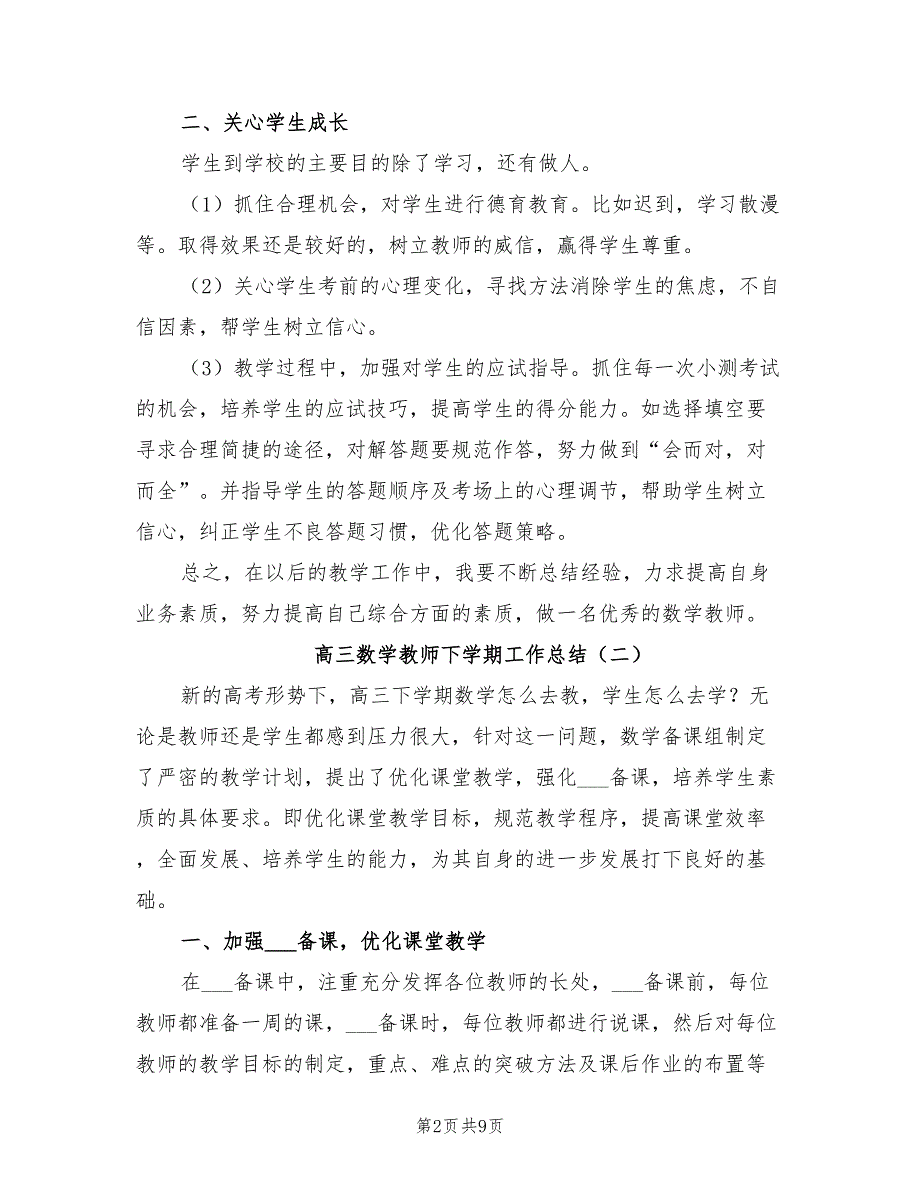 二、关心学生成长
学生到学校的主要目的除了学习，还有做人。
（1）抓住合理机会，对学生进行德育教育。比如迟到，学习散漫
等。取得效果还是较好的，树立教师的威信，赢得学生尊重。
（2）关心学生考前的心理变化，寻找方法消除学生的焦虑，不自
信因素，帮学生树立信心。
（3）教学过程中，加强对学生的应试指导。抓住每一次小测考试
的机会，培养学生的应试技巧，提高学生的得分能力。如选择填空要
寻求合理简捷的途径，对解答题要规范作答，努力做到“会而对，对
而全”。并指导学生的答题顺序及考场上的心理调节，帮助学生树立
信心，纠正学生不良答题习惯，优化答题策略。
总之，在以后的教学工作中，我要不断总结经验，力求提高自身
业务素质，努力提高自己综合方面的素质，做一名优秀的数学教师。
高三数学教师下学期工作总结（二）
新的高考形势下，高三下学期数学怎么去教，学生怎么去学？无
论是教师还是学生都感到压力很大，针对这一问题，数学备课组制定
了严密的教学计划，提出了优化课堂教学，强化___备课，培养学生素
质的具体要求。即优化课堂教学目标，规范教学程序，提高课堂效率
，全面发展、培养学生的能力，为其自身的进一步发展打下良好的基
础。
一、加强___备课，优化课堂教学
在___备课中，注重充分发挥各位教师的长处，___备课前，每位
教师都准备一周的课，___备课时，每位教师都进行说课，然后对每位
教师的教学目标的制定，重点、难点的突破方法及课后作业的布置等
第2页共9页